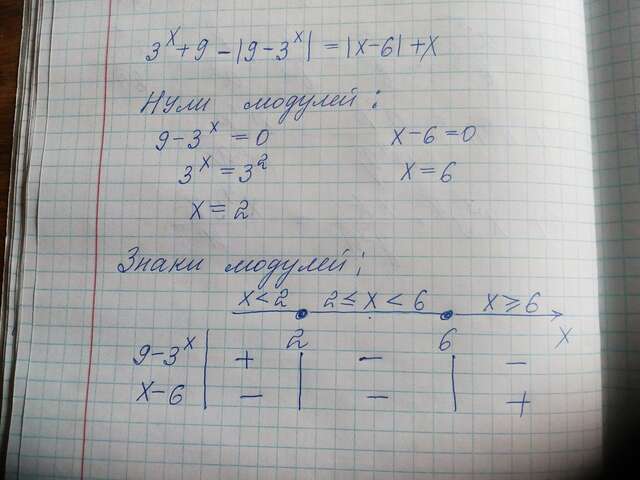 3^x+9-|9-3^x| = |x-6|+x
Нули модулей:
9-3^x=0 x-6=0
3^x=3^2 x=6
x=2
Знаки модулей:
x<2 2≤x<6 x≥6
2 6 x
9-3^x + - -
x-6 - - +